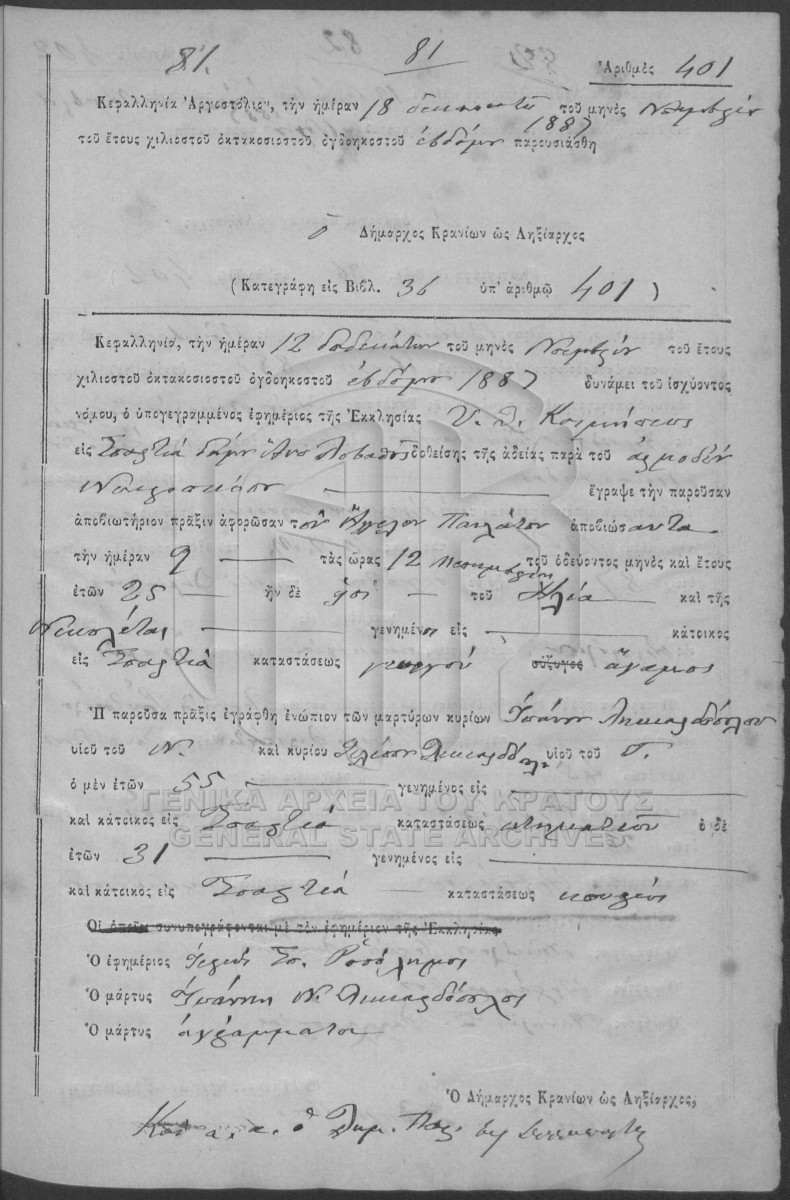 81. 81 Ἀριθμὸς 401
Κεφαλληνία Ἀργοστόλιον, τὴν ἡμέραν 18 τοῦ μηνὸς
τοῦ ἔτους χιλιοστοῦ ὀκτακοσιοστοῦ ὀγδοηκοστοῦ ἑβδόμου 1887 παρουσιάσθη
ὁ Δήμαρχος Κρανίων ὡς Ληξίαρχος
(Κατεγράφη εἰς Βιβλ. 36 ὑπ' ἀριθμῷ 401)
Κεφαλληνία, τὴν ἡμέραν 12 δωδεκάτην τοῦ μηνὸς Νοεμβρίου τοῦ ἔτους
χιλιοστοῦ ὀκτακοσιοστοῦ ὀγδοηκοστοῦ ἑβδόμου 1887 δυνάμει τοῦ ἰσχύοντος
νόμου, ὁ ὑπογεγραμμένος ἐφημέριος τῆς Ἐκκλησίας Υ. Θ. Κοιμήσεως
εἰς Σπαρτιὰ δήμου δοθείσης τῆς ἀδείας παρὰ τοῦ ἁρμοδίου
ἔγραψε τὴν παροῦσαν
ἀποβιωτήριον πρᾶξιν ἀφορῶσαν τὸν Ἄγγελον Παυλάτον ἀποβιώσαντα
τὴν ἡμέραν 9 τὰς ὥρας 12 μεσημβρίαν τοῦ ὁδεύοντος μηνὸς καὶ ἔτους
ἐτῶν 25 ἦν δὲ υἱὸς τοῦ Ἠλία καὶ τῆς
Νικολέτας γενημένος εἰς κάτοικος
εἰς Σπαρτιὰ καταστάσεως γεωργοῦ σύζυγος ἄγαμος
Ἡ παροῦσα πρᾶξις ἐγράφθη ἐνώπιον τῶν μαρτύρων κυρίων Ἰωάννου Λικιαρδόπουλου
υἱοῦ τοῦ Ν. καὶ κυρίου υἱοῦ τοῦ
ὁ μὲν ἐτῶν 55 γενημένος εἰς
ΓΕΝΙΚΑ ΑΡΧΕΙΑ ΤΟΥ ΚΡΑΤΟΥΣ
καὶ κάτοικος εἰς Σπαρτιὰ καταστάσεως κτηματίου ὁ δὲ
GENERAL STATE ARCHIVES
ἐτῶν 31 γενημένος εἰς
καὶ κάτοικος εἰς Σπαρτιὰ καταστάσεως
Οἱ ὁποῖοι συνυπογράφονται μὲ τὸν ἐφημέριον τῆς Ἐκκλησίας
Ὁ ἐφημέριος Ἱερεὺς Σπ.
Ὁ μάρτυς Ἰωάννης Ν. Λικιαρδόπουλος
Ὁ μάρτυς ἀγράμματος
Ὁ Δήμαρχος Κρανίων ὡς Ληξίαρχος,
ὁ Δημ. Παρ.